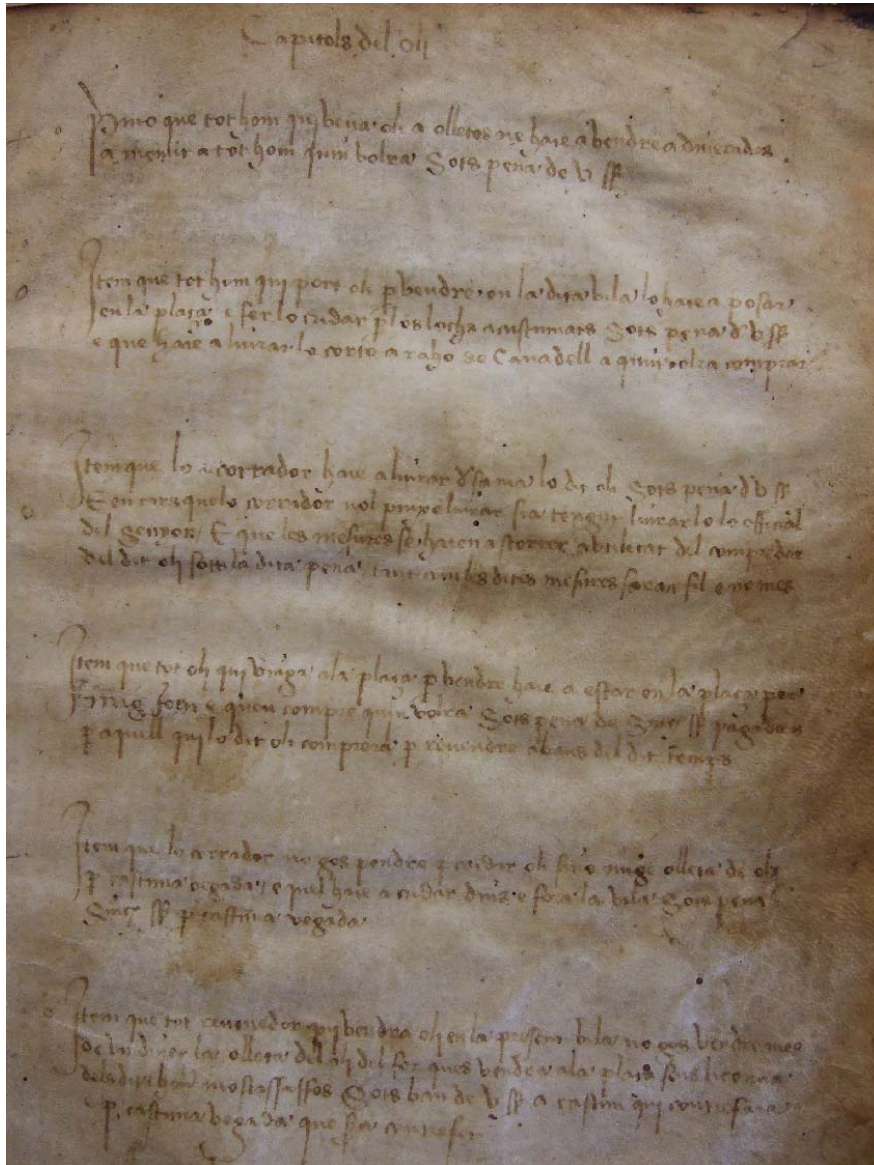 Capitols del oli
Primo que tot hom qui vena oli a olletes ne haie a vendre a dinerades
a menut a tot hom quin volra Sots pena de v ss
Item que tot hom qui port oli p vendre en la dita vila lo haie a posar
en la plaça e fer lo cridar p los lochs acustumats Sots pena d v ss
e que haie a liurar lo corto a raho de Canadell a quin volra comprar
Item que lo corrador haie a liurar d sa ma lo dit oli Sots pena d v ss
E en cars que lo corrador nol pusxe liurar sia tengut liurarlo lo official
del Senyor E que les mesures se haien a storcer a utilitat del comprador
del dit oli sots la dita pena tant com les dites mesures faran fil e no mes
Item que tot oli qui vinga a la plaça p vendre haie a estar en la plaça per
mig jorn e quen compre quin volra Sots pena de Sinch ss pagadors
p aquell qui lo dit oli comprara p revendre abans del dit temps
Item que lo corrador no gos pendre p cridar oli sino mige olleta de oli
p castuna vegada e pus haie a cridar dins e fora la vila Sots pena
Sinch ss p castuna vegada
Item que tot revenedor qui vendra oli en la present vila no gos vendre mes
de un diner la olleta del oli del for ques vendra a la plaça sens licencia
dels mostassaffos Sots ban de v ss a castun qui contrafara
p castuna vegada que sia contrafet